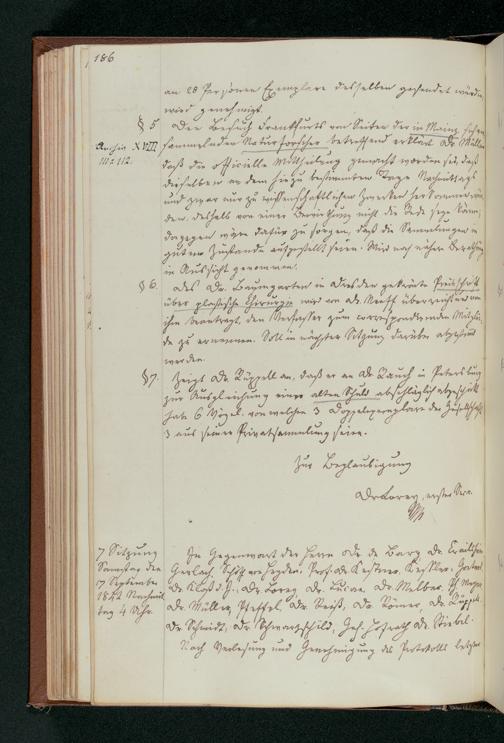 186
an 28 Personen Exemplare desselben gesendet würden
wird genehmigt.
§ 5. Den Besuch Frankfurts von Seiten der in Mainz sich ver-
Archiv XVIII
111 u 112.
sammelnden Naturforscher betreffend erklärt Dr. Müller
daß die officielle Mittheilung gemacht worden sei, daß
dieselben an dem hiezu bestimmten Tage Nachmittags
und zwar nur zu wissenschaftlichen Zwecken herkommen wür-
den, deshalb von einer Bewirthung nicht die Rede seyn kann,
dagegen wäre dafür zu sorgen, daß die Sammlungen in
gutem Zustande aufgestellt seien. Wird noch nähere Berathung
in Aussicht genommen.
§ 6. Des Dr. Baumgarten in Dresden gekrönte Preisschrift
über plastische Chirurgie wird von
beantragt, den Verfasser zum correspondirenden Mitglie-
de zu ernennen. Soll in nächster Sitzung darüber abgestimmt
werden.
§ 7. Zeigt Dr. Rüppell an, daß er an Dr. Rauch in Petersburg
zur Ausgleichung einer alten Schuld abschläglich abgeschickt
habe 6 Vögel von welchen 3 Doppelexemplare der Gesellschaft
3 aus seiner Privatsammlung seien.
Zur Beglaubigung
Dr Lorey, erster Secr.
7 Sitzung
Samstag den
17 September
1842 Nachmit
tag 4 Uhr.
In Gegenwart der Herrn Dr. de Bary, Dr. Crailsheim
Gerlach, von Heyden, Prof. Dr. Kestner, Kessler,
Dr. Kloß d. J., Dr. Lorey, Dr. Lucae, Dr. Melber,
Dr. Müller, Pfeffel, Dr. Reiß, Dr. Römer, Dr. Rüppell,
Dr. Schmidt, Dr. Schwarzschild, Geh. Hofrath Dr. Stiebel.
Nach Verlesung und Genehmigung des Protokolls letzter